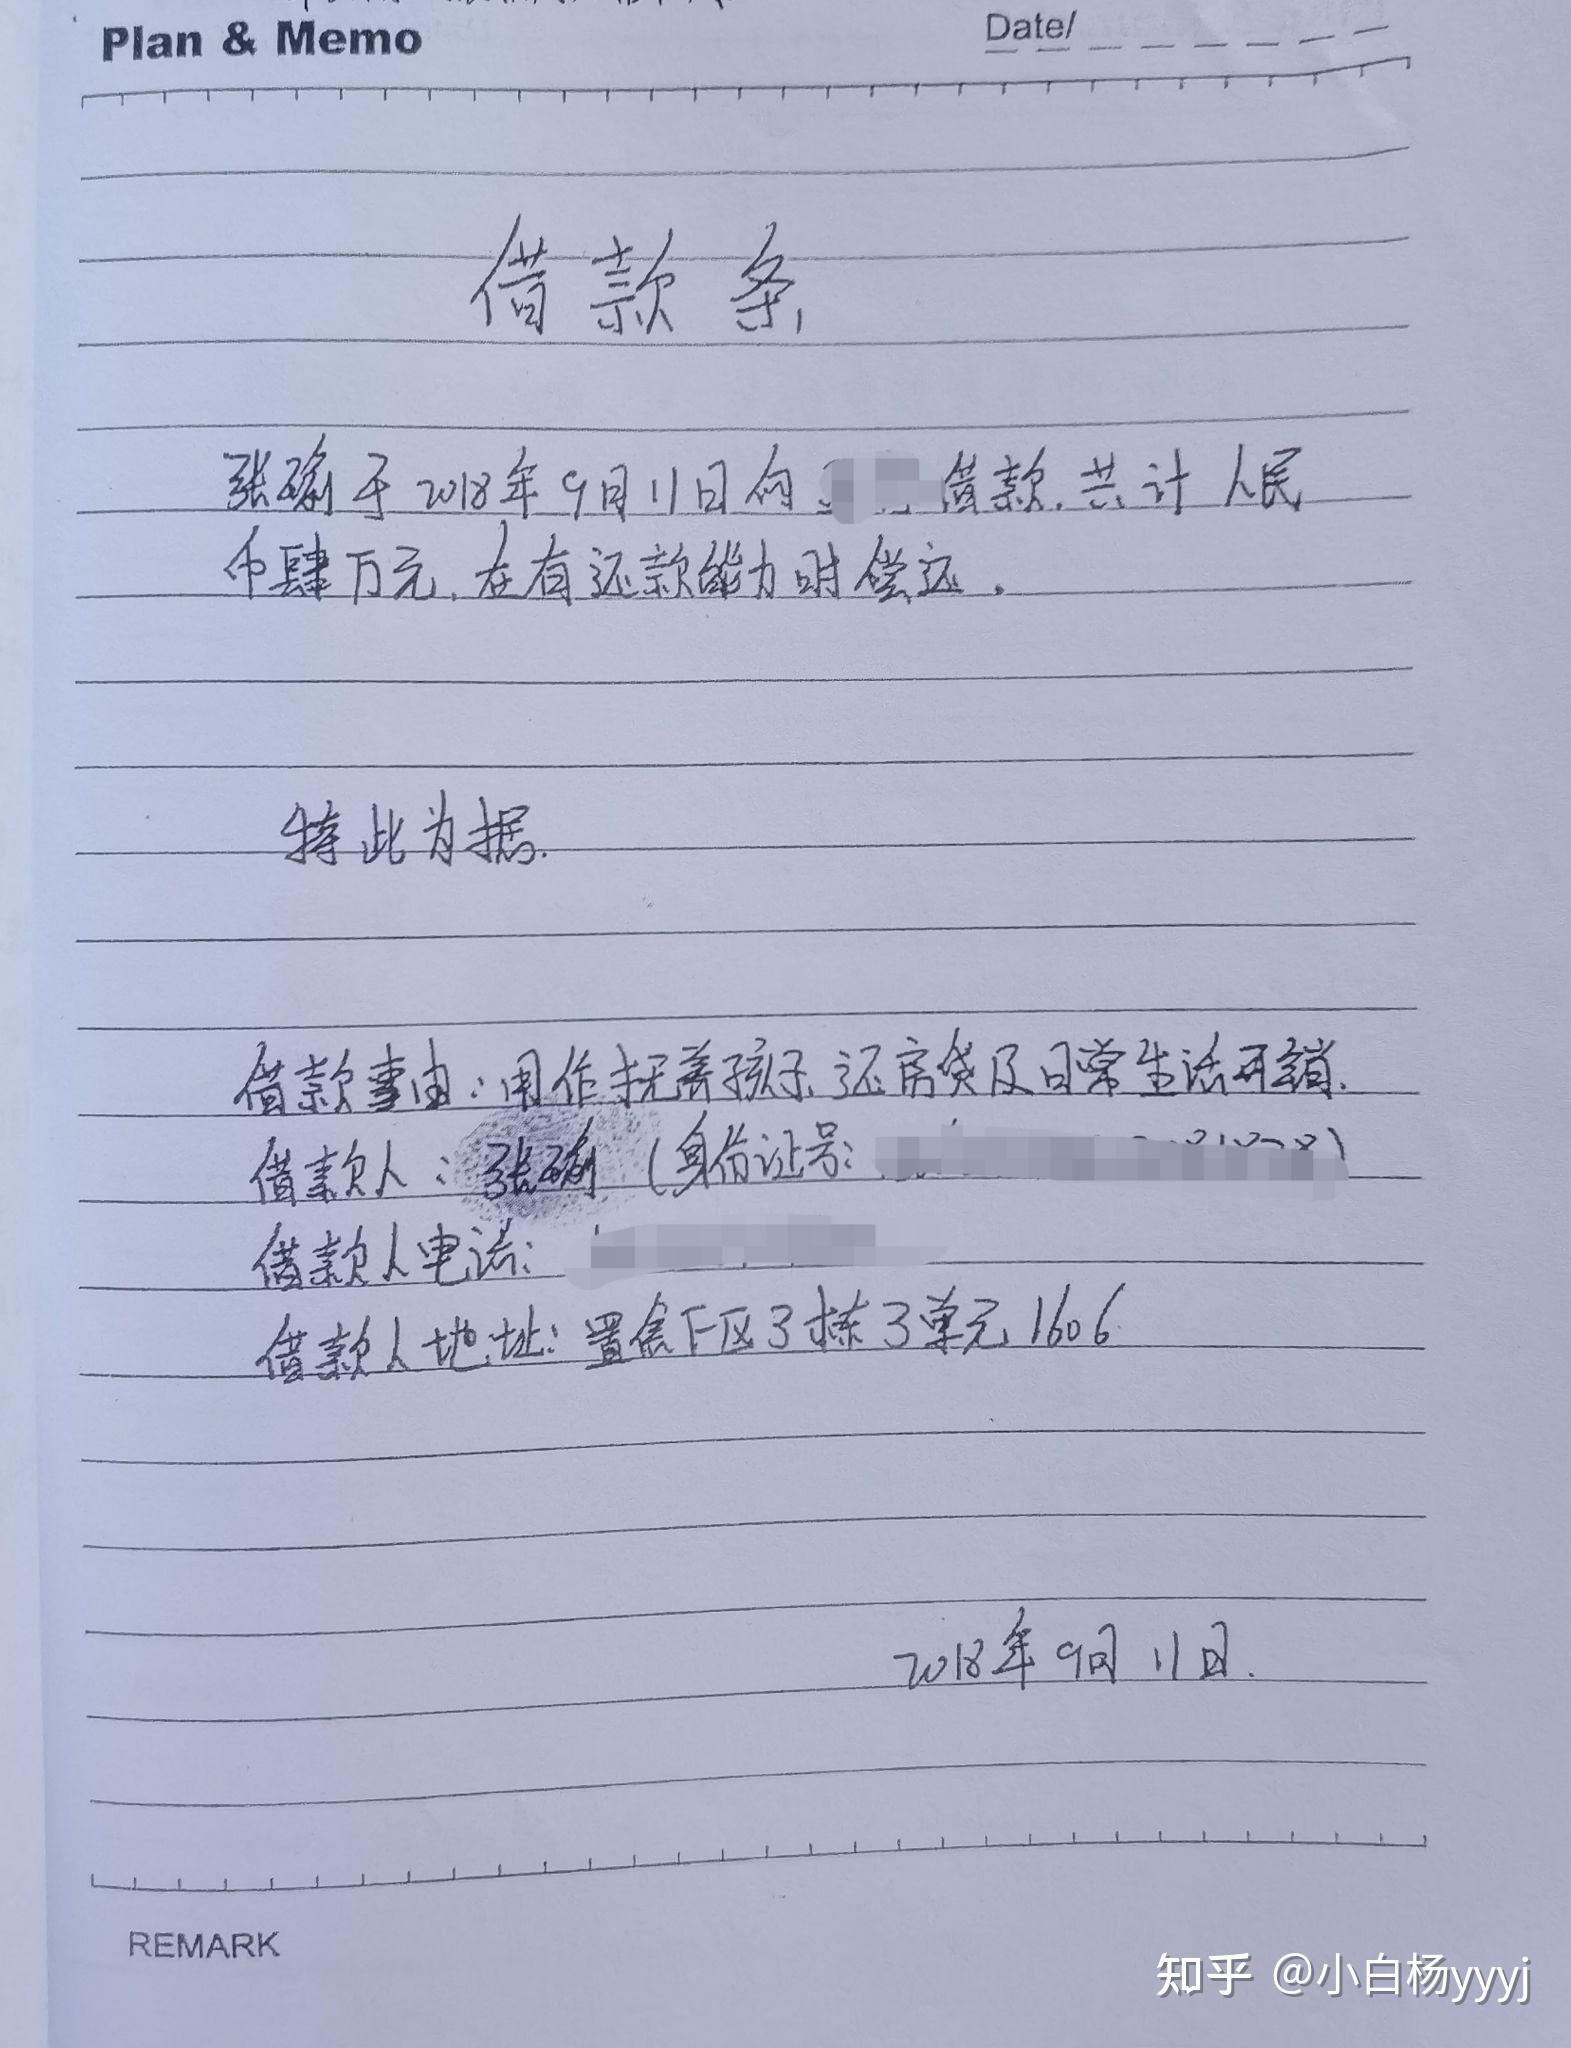 Plan & Memo
Date/
借款条
张瑜于2018年9月11日向 借款,共计人民
币肆万元,在有还款能力时偿还。
特此为据.
借款事由:用作抚养孩子、还房贷及日常生活开销.
借款人:张瑜 (身份证号: )
借款人电话:
借款人地址:置信F区3栋3单元1606
2018年9月11日.
REMARK
知乎 @小白杨yyyj